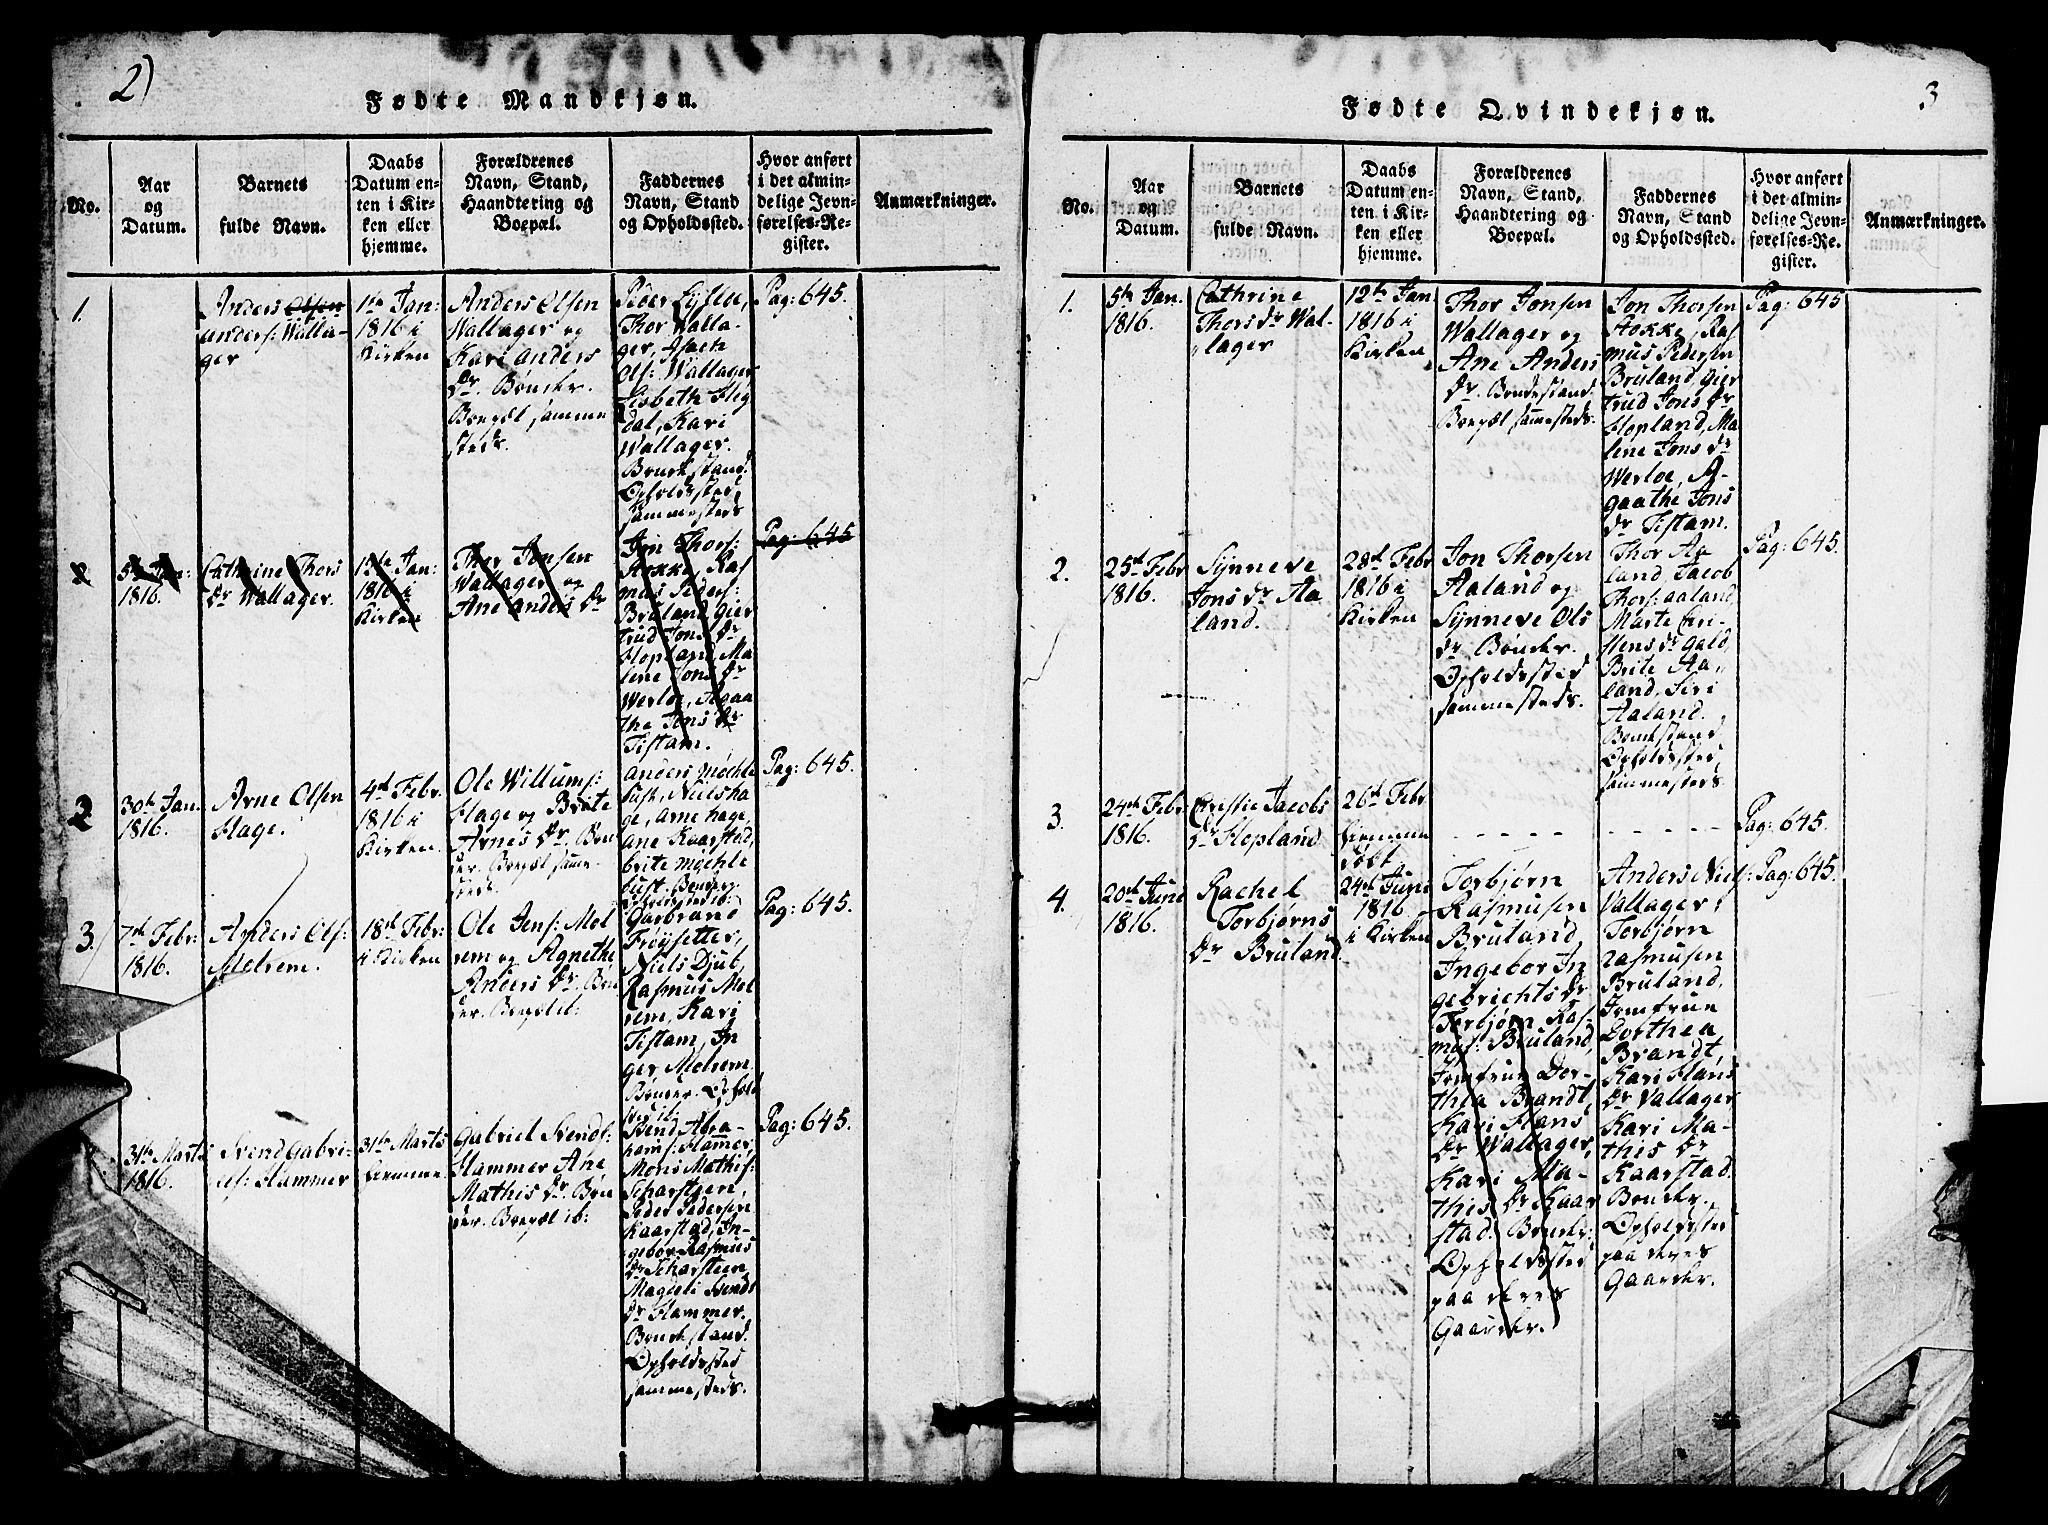 2)
Fødte Mandkjøn.
No.
Aar
og
Datum.
Barnets
fulde Navn.
Daabs
Datum en-
ten i Kir-
ken eller
hjemme.
Forældrenes
Navn, Stand,
Haandtering og
Boepæl.
Faddernes
Navn, Stand
og Opholdssted.
Hvor anført
i det almin-
delige Jevn-
førelses-Re-
gister.
Anmærkninger.
1.
Anders Olsen
Anders: Walla-
ger
1ste Jan:
1816 i
Kirken
Anders Olsen
Wallager og
Kari Anders
Dr. Bønder.
Boepæl samme
steds.
Thor Walla-
ger,
Ols: Wallager
Lisbeth Fleg
dal, Kari
Wallager.
Bondestand.
Opholdssted
sammesteds
Pag: 645.
2
5te Jan:
1816.
Cathrine Thors
Dr Wallager.
12te Jan:
1816 i
Kirken
Thor Jonsen
Wallager og
Ane Anders Dr
Jon Thors:
Stokke, Ras
mus Peders:
Bruland, Gier
trud Jons Dr
Hopland, Ma
lene Jons Dr
Werloe, Agaa
the Jons Dr
Tistam.
Pag: 645
2
30te Jan.
1816.
Arne Olsen
Hage.
4de Febr.
1816 i
Kirken.
Ole Willums:
Hage og Brite
Arnes Dr. Bøn
der. Boepæl samme
steds.
Anders Møchle
bust, Niels Ha
ge, Arne Hage,
Ane Kaarstad,
Brite Møchle
bust. Bønder
Pag: 645.
3.
7de Febr:
1816.
Anders Ols:
Melrem.
18de Febr:
i Kirken
Ole Jens: Mel
rem og Agnethe
Anders Dr. Bøn
der. Boepæl ib:
Garbrand
Frøysetter,
Niels Djub,
Rasmus Mel
rem, Kari
Tistam, In
ger Melrem.
Bønder. Ophold
sted ib:
Pag: 645.
31te Marts
1816.
Svend Gabri-
els: Hammer
31te Marts
hiemme.
Gabriel Svends:
Hammer Ane
Mathis Dr. Bøn
der. Boepæl ib:
Bend Abra-
hams: Hammer,
Mons Mathis:
Scharsteen,
Peder Pedersen
Kaarstad, In-
gebor Rasmus
Dr Scharsteen
Magieli Svends
Dr Hammer.
Bondestand.
Opholdssted
sammesteds.
Pag: 645.
3
Fødte Qvindekjøn.
No.
Aar
og
Datum.
Barnets
fulde Navn.
Daabs
Datum en-
ten i Kir-
ken eller
hjemme.
Forældrenes
Navn, Stand,
Haandtering og
Boepæl.
Faddernes
Navn, Stand
og Opholdssted.
Hvor anført
i det almin-
delige Jevn-
førelses-Re-
gister.
Anmærkninger.
1.
5te Jan.
1816.
Cathrine
Thors Dr Wal-
lager
12te Jan
1816 i
Kirken
Thor Jonsen
Wallager og
Ane Anders
Dr. Bondestand.
Boepæl sammesteds.
Jon Thorsen
Stokke, Ras
mus Pedersen
Bruland, Gier
trud Jons Dr
Hopland, Ma
lene Jons Dr
Werloe, A-
gaathe Jons
Dr Tistam.
Pag: 645
2.
25de Febr
1816.
Synneve
Jons Dr Aa
land.
28de Febr
1816 i
Kirken
Jon Thorsen
Aaland og
Synneve Ols
Dr. Bønder.
Opholdssted
sammesteds.
Thor Aa
land, Jacob
Thors: Aaland,
Marte Cri-
stens Dr Gald,
Brite Aa-
land, Siri
Aaland.
Bondestand
Opholdssted
sammesteds.
Pag: 645.
3.
24de Febr.
1816.
Crestie Jacobs
Dr Hopland
26de Febr.
hiemme
døbt
- - - - -
- - - - -
Pag: 645.
4.
20de Juni
1816.
Rachel
Torbjørns
Dr Bruland
24de Juni
1816
i Kirken
Torbjørn
Rasmusen
Bruland
Ingebor In
gebrichts Dr
Torbjørn Ras
mus: Bruland,
Jomfrue Dor-
thea Brandt,
Kari Hans
Dr Wallager,
Kari Ma-
this Dr Kaar
stad. Bønder.
Opholdssted
paa deres
Gaarder.
Anders Niels:
Vallager,
Torbjørn
Rasmusen
Bruland,
Jomfrue
Dorthea
Brandt,
Kari Hans
Dr Vallager
Kari Ma-
this Dr
Kaarstad.
Bønder.
Opholdssted
paa deres
Gaarder.
Pag: 645.